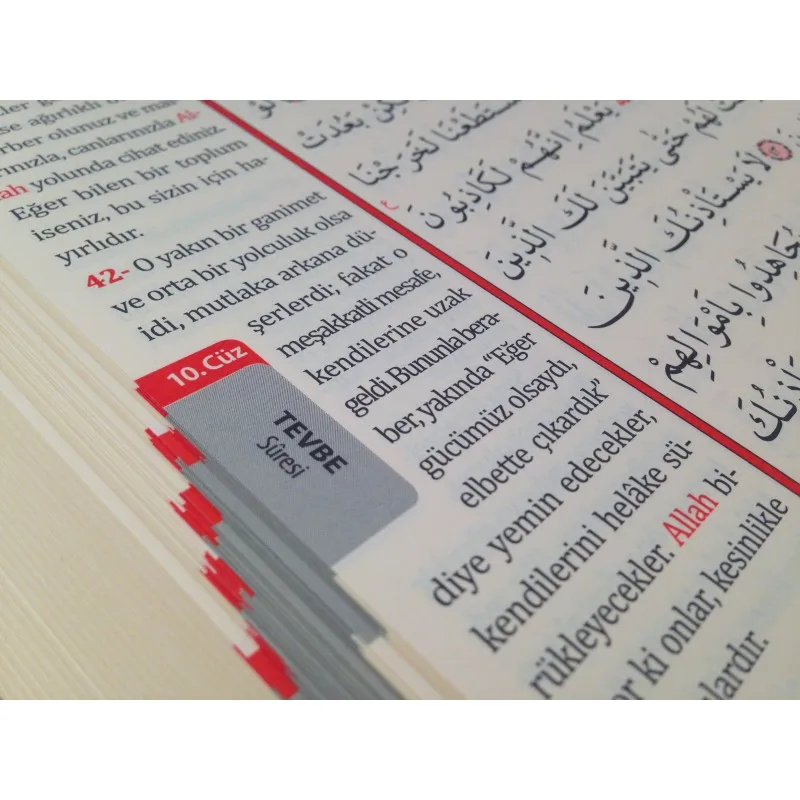 se ağırlıklı
olunuz ve
canlarınızla Al-
ah yolunda cihat ediniz.
Eğer bilen bir toplum
iseniz, bu sizin için ha-
yırlıdır.
42- O yakın bir ganimet
ve orta bir yolculuk olsa
idi, mutlaka arkana dü-
şerlerdi; fakat o
meşakkatli mesafe,
kendilerine uzak
geldi. Bununla bera-
ber, yakında "Eğer
gücümüz olsaydı,
elbette çıkardık"
diye yemin edecekler,
kendilerini helâke sü-
rükleyecekler. Allah bi-
ki onlar, kesinlikle
lardır.
10.Cüz
TEVBE
Sûresi
بَعُدَتْ
اسْتَطَعْنَا لَخَرَجْنَا
يَعْلَمُ اِنَّهُمْ لَكَاذِبُونَ
لَهُمْ حَتّٰى يَتَبَيَّنَ لَكَ الَّذ۪ينَ
لَا يَسْتَأْذِنُكَ الَّذ۪ينَ
يُجَاهِدُوا بِاَمْوَالِهِمْ